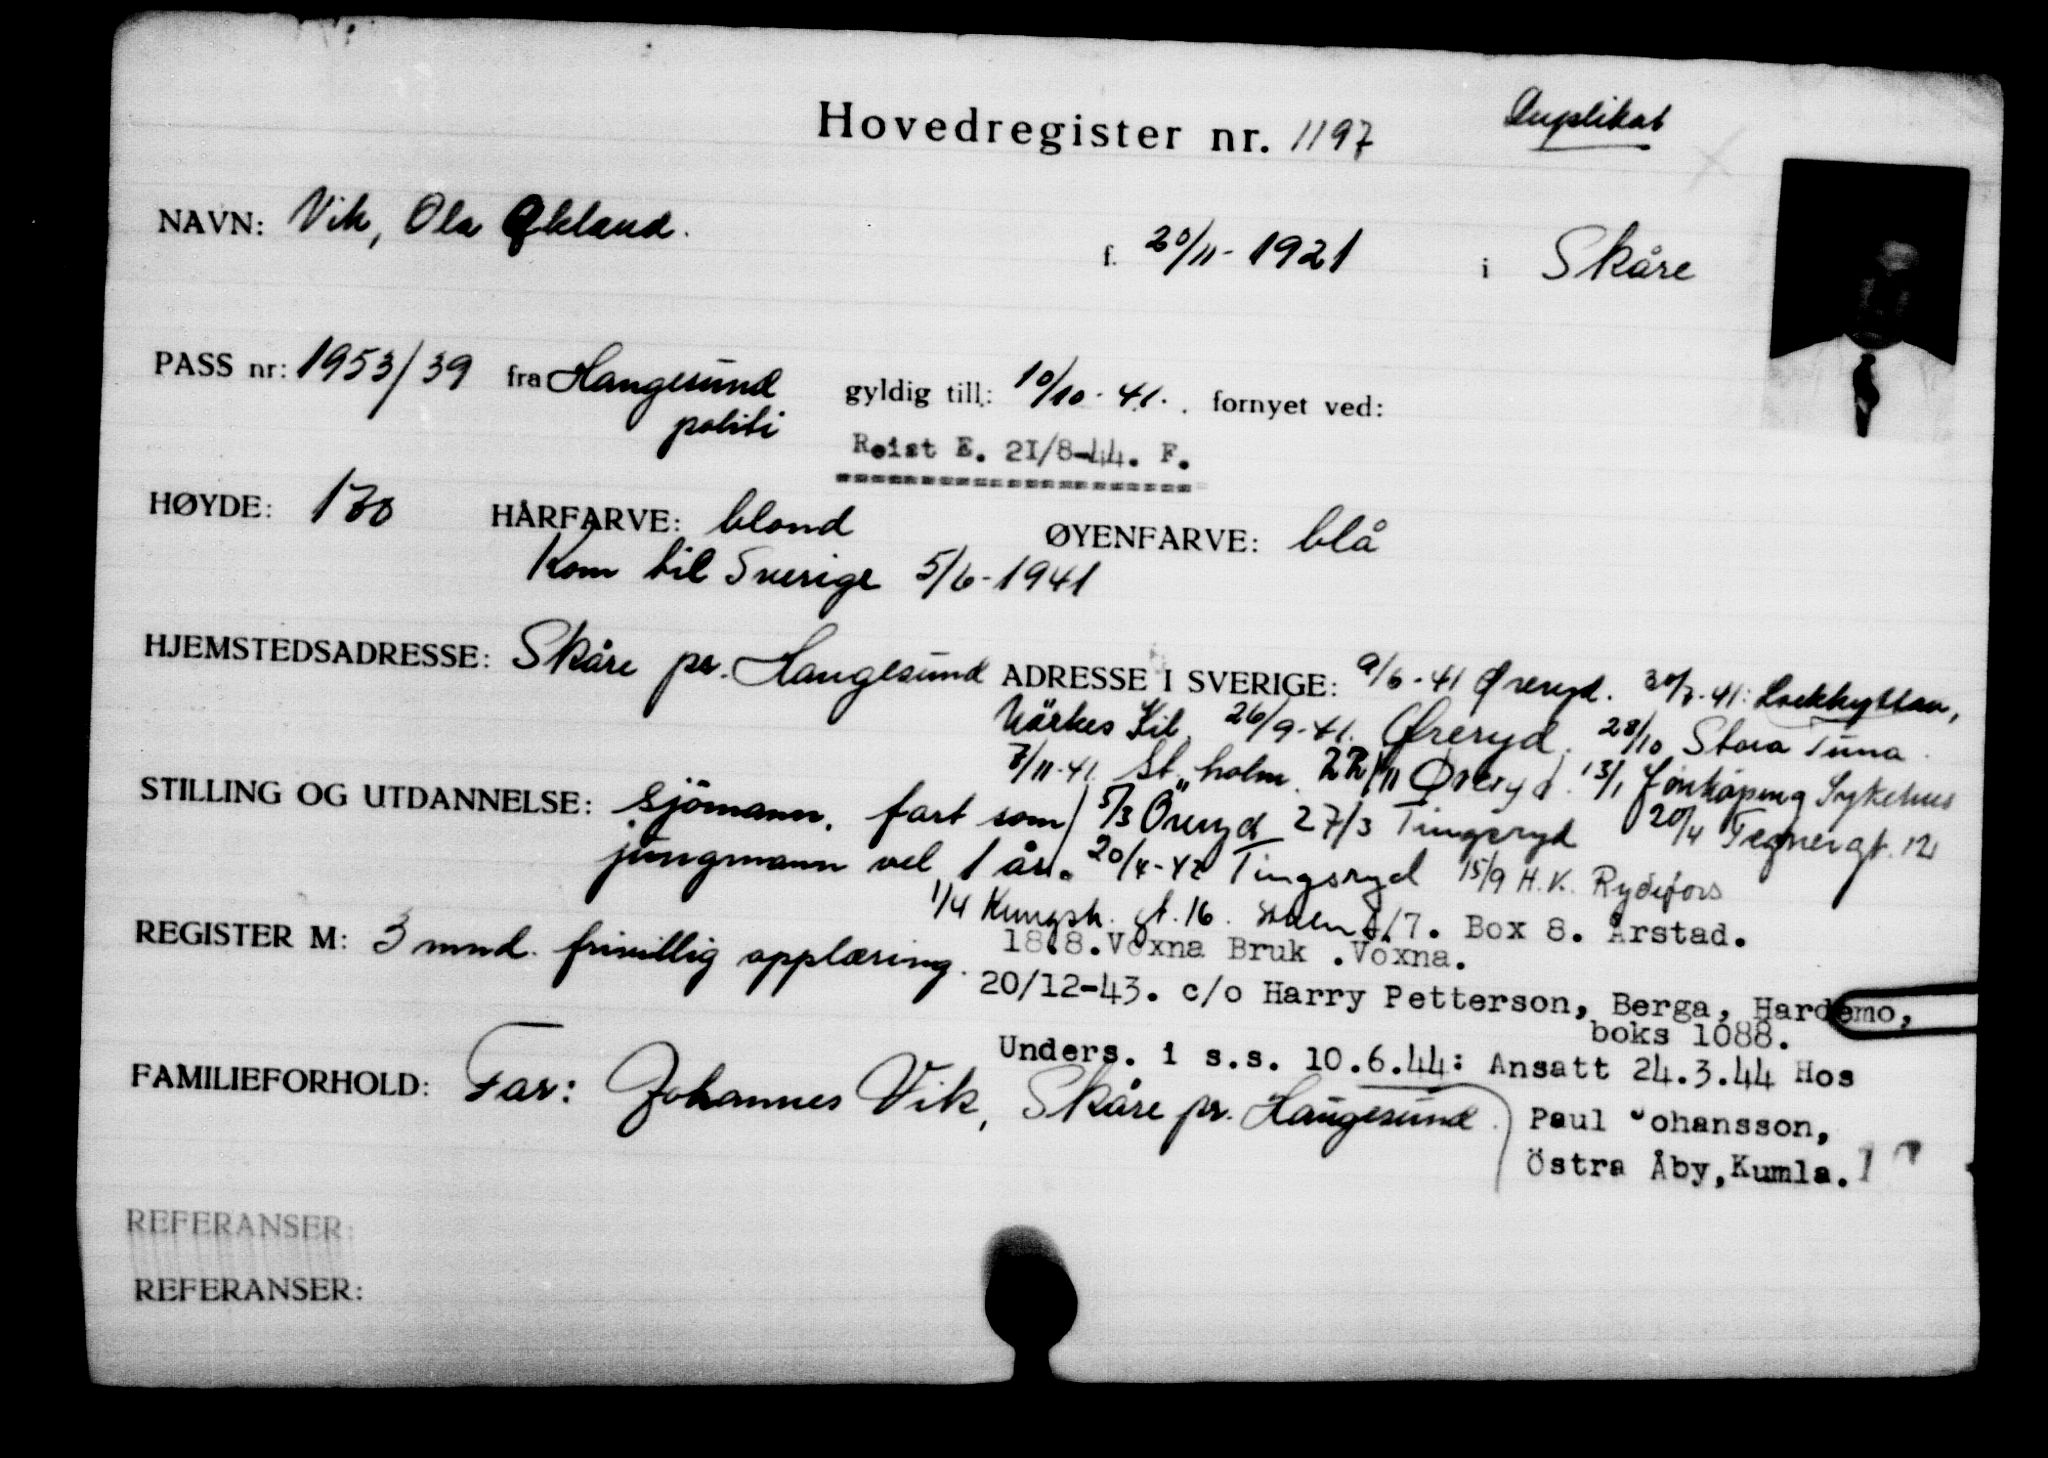 Hovedregister nr. 1197
Duplikat
NAVN: Vik, Ola Økland.
f. 20/11-1921 i Skåre
PASS nr: 1953/39 fra Haugesund gyldig till: 10/10-41. fornyet ved:
politi
Reist E. 21/8-44. F.
HØYDE: 170 HÅRFARVE: blond ØYENFARVE: blå
Kom til Sverige 5/6-1941
HJEMSTEDSADRESSE: Skåre pr. Haugesund ADRESSE I SVERIGE: 9/6-41 Øreryd. 30/7-41: Loekhyttan,
Närkes Kil, 26/9-41. Øreryd. 28/10 Stora Tuna
7/11-41. St.holm. 22/11 Øreryd. 13/1 Jönköping Sykehus
STILLING OG UTDANNELSE: sjömann, fart som 5/3 Öreryd 27/3 Tingsryd 20/4 Tegnergt. 12
jungmann vel 1 år. 20/4-42 Tingsryd 15/9 H.K. Rydefors
1/4 Kungsh. gt. 16. /7. Box 8. Årstad.
REGISTER M: 3 mnd. frivillig opplæring. 18.8. Voxna Bruk. Voxna.
20/12-43. c/o Harry Petterson, Berga, Hardemo,
boks 1088.
Unders. i s.s. 10.6.44: Ansatt 24.3.44 Hos
FAMILIEFORHOLD: Far: Johannes Vik, Skåre pr. Haugesund. Paul Johansson,
Östra Åby, Kumla.
REFERANSER:
REFERANSER: